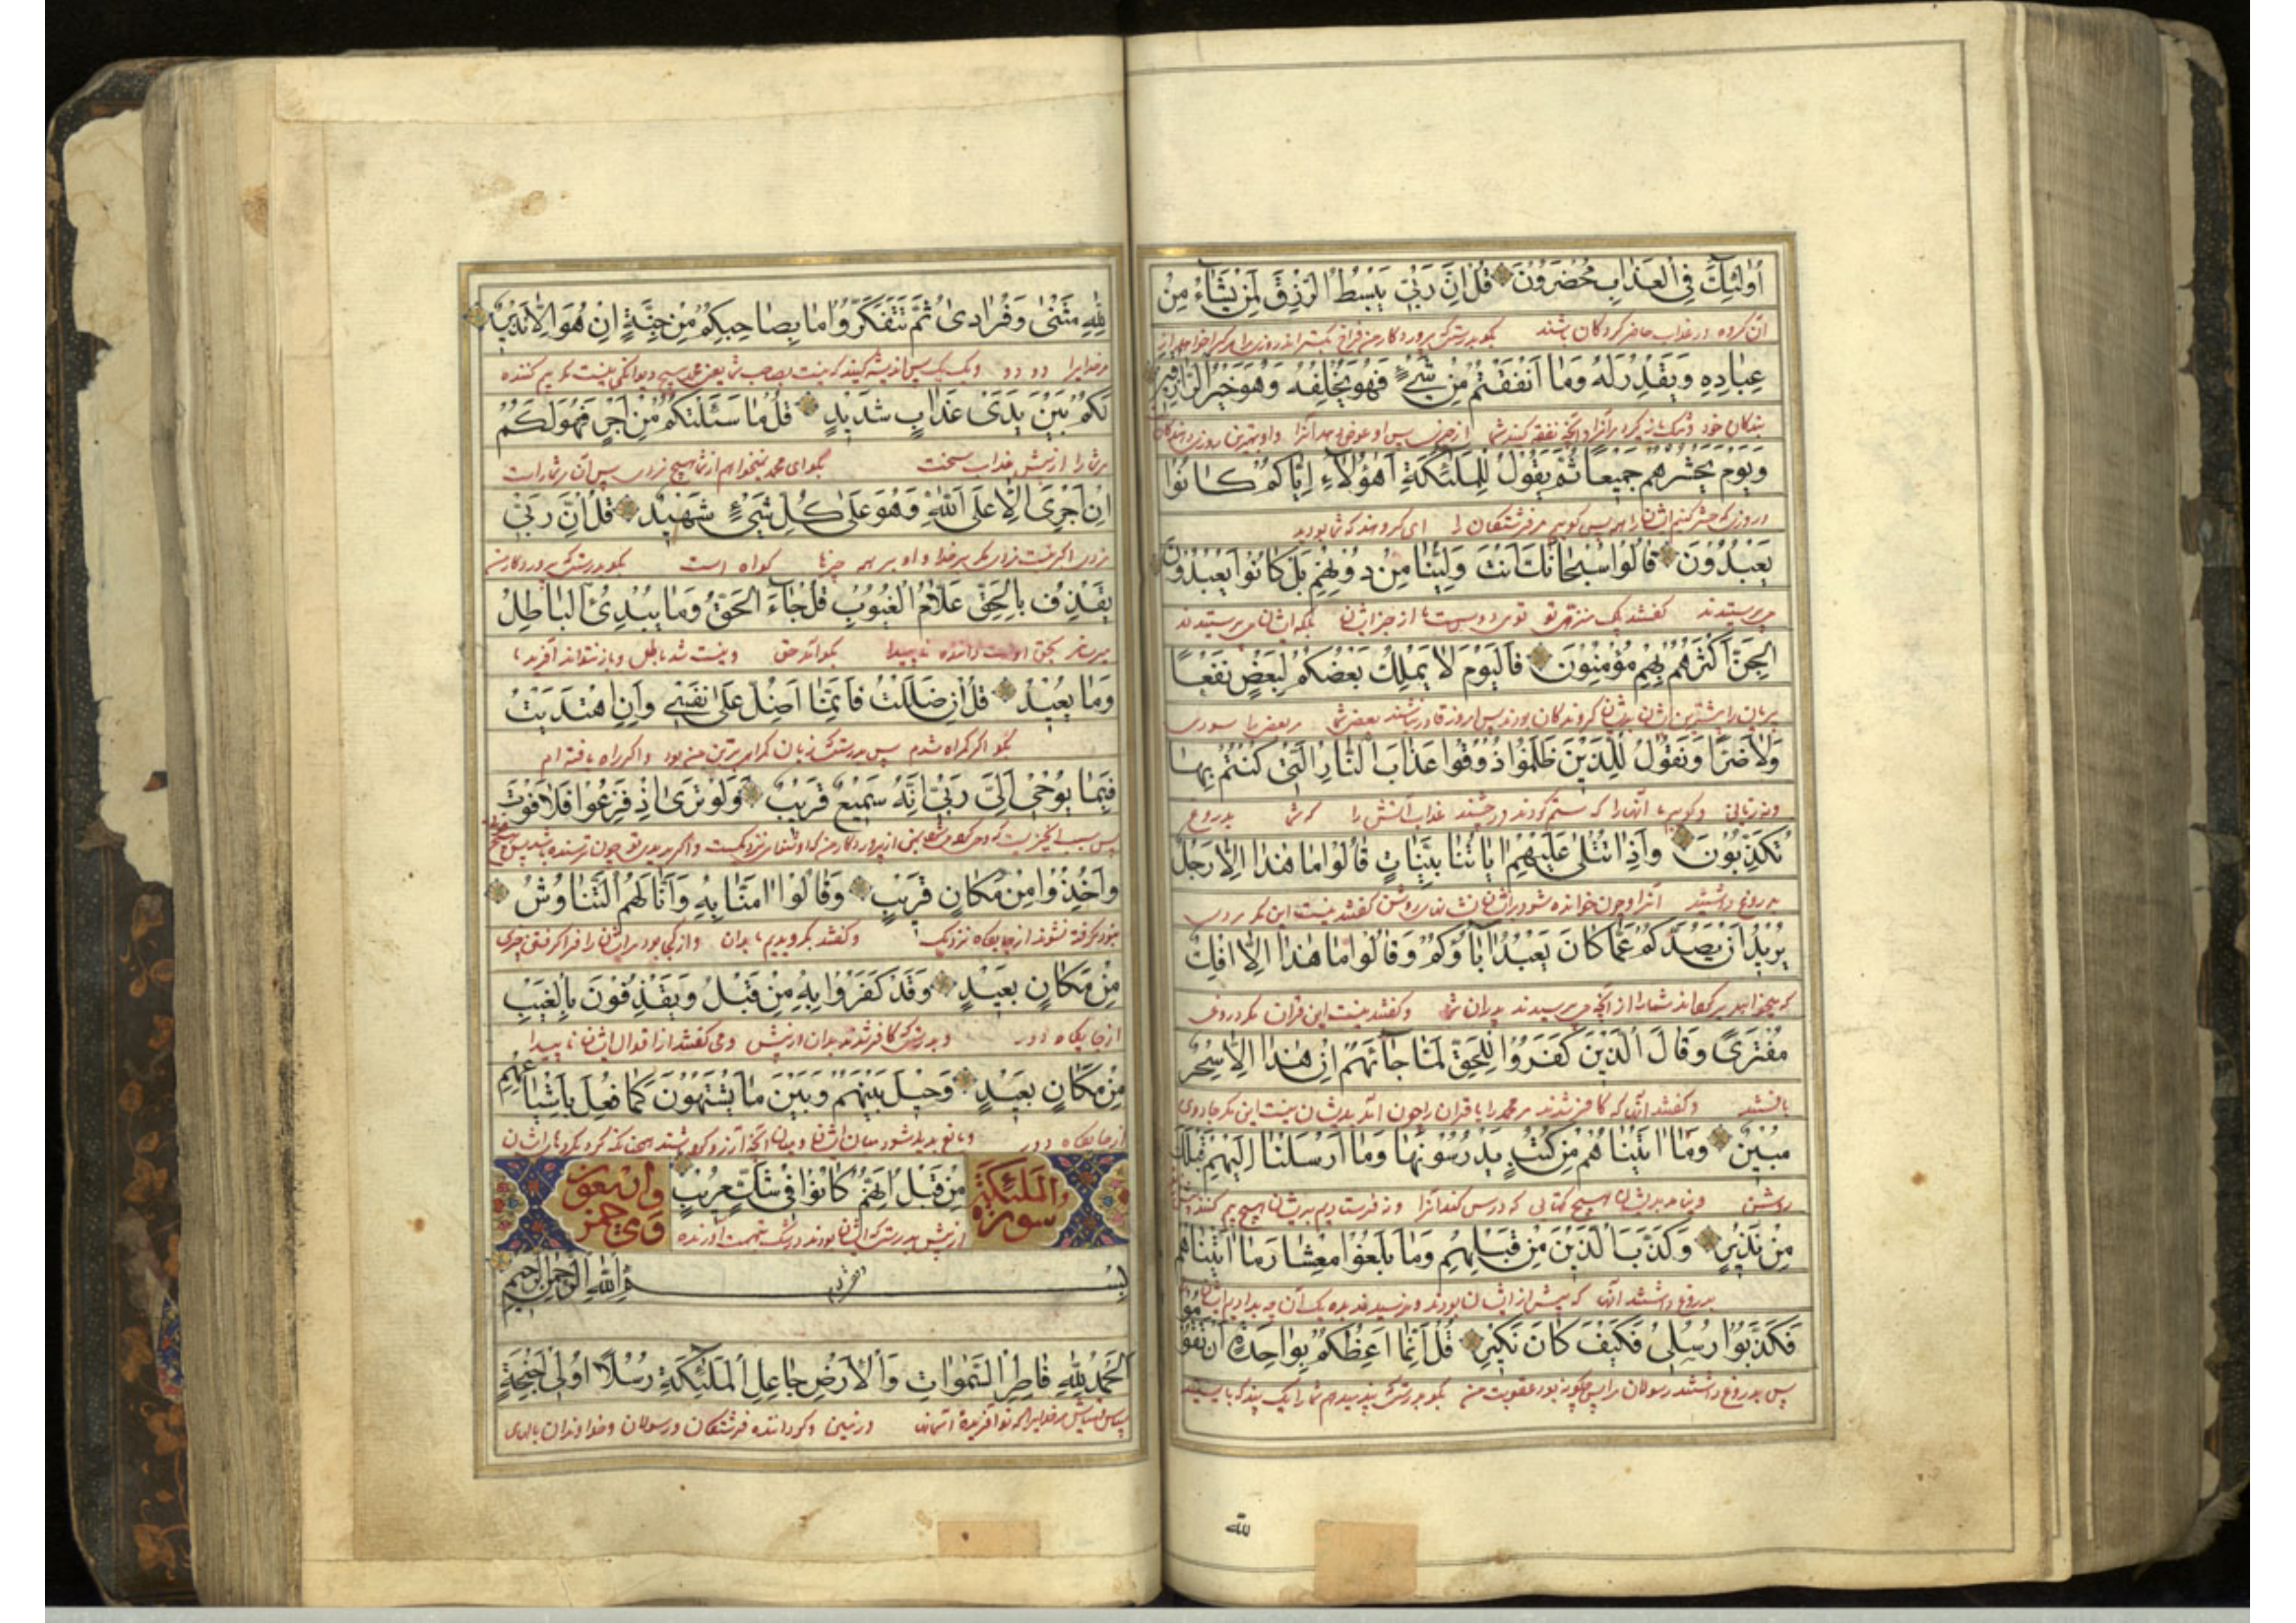 أُولَٰئِكَ فِي الْعَذَابِ مُحْضَرُونَ قُلْ إِنَّ رَبِّي يَبْسُطُ الرِّزْقَ لِمَنْ يَشَاءُ مِنْ
آن گروه در عذاب حاضر کردگان باشند بگو بدرستی که پروردگار من فراخ
عِبَادِهِ وَيَقْدِرُ لَهُ وَمَا أَنْفَقْتُمْ مِنْ شَيْءٍ فَهُوَ يُخْلِفُهُ وَهُوَ خَيْرُ الرَّازِقِينَ
بندگان خود و تنک و آنچه نفقه کنید شما از چیزی پس او عوض دهد آنرا و او بهترین روزی دهندگان
وَيَوْمَ يَحْشُرُهُمْ جَمِيعًا ثُمَّ يَقُولُ لِلْمَلَائِكَةِ أَهَٰؤُلَاءِ إِيَّاكُمْ كَانُوا
و روزی که حشر کنیم ایشانرا همه پس گوییم مر فرشتگان را ای گروهند که شما بودید
يَعْبُدُونَ قَالُوا سُبْحَانَكَ أَنْتَ وَلِيُّنَا مِنْ دُونِهِمْ بَلْ كَانُوا يَعْبُدُونَ
می پرستیدند گفتند تو توی دوست ما از جز ایشان بلکه ایشان می پرستیدند
الْجِنَّ أَكْثَرُهُمْ بِهِمْ مُؤْمِنُونَ فَالْيَوْمَ لَا يَمْلِكُ بَعْضُكُمْ لِبَعْضٍ نَفْعًا
پریان را بیشترین ایشان بدیشان گروندگان بودند پس امروز قادر نباشند بعضی شما مر بعضی را سودی
وَلَا ضَرًّا وَنَقُولُ لِلَّذِينَ ظَلَمُوا ذُوقُوا عَذَابَ النَّارِ الَّتِي كُنْتُمْ بِهَا
و نه زیانی و گوییم ما آنها را که ستم کردند و چشید عذاب آتش را که شما بدروغ
تُكَذِّبُونَ وَإِذَا تُتْلَىٰ عَلَيْهِمْ آيَاتُنَا بَيِّنَاتٍ قَالُوا مَا هَٰذَا إِلَّا رَجُلٌ
بدروغ داشتید آنرا و چون خوانده شود بر ایشان نشانهای روشن گفتند نیست این مگر مردی
يُرِيدُ أَنْ يَصُدَّكُمْ عَمَّا كَانَ يَعْبُدُ آبَاؤُكُمْ وَقَالُوا مَا هَٰذَا إِلَّا إِفْكٌ
که میخواهد شما را از آنچه می پرستیدند پدران شما و گفتند نیست این قران مگر دروغ
مُفْتَرًى وَقَالَ الَّذِينَ كَفَرُوا لِلْحَقِّ لَمَّا جَاءَهُمْ إِنْ هَٰذَا إِلَّا سِحْرٌ
و گفتند آنان که کافر شدند مر محمد را یا قران را چون آمد بدیشان نیست این مگر جادوی
مُبِينٌ وَمَا آتَيْنَاهُمْ مِنْ كُتُبٍ يَدْرُسُونَهَا وَمَا أَرْسَلْنَا إِلَيْهِمْ قَبْلَكَ
روشن و ندادیم بدیشان هیچ کتابی که درس کنند آنرا و نه فرستادیم بدیشان هیچ بیم کننده
مِنْ نَذِيرٍ وَكَذَّبَ الَّذِينَ مِنْ قَبْلِهِمْ وَمَا بَلَغُوا مِعْشَارَ مَا آتَيْنَاهُمْ
بدروغ داشتند آنها که پیش از ایشان بودند و نرسیدند ده یک آن چه بدادیم ایشان
فَكَذَّبُوا رُسُلِي فَكَيْفَ كَانَ نَكِيرِ قُلْ إِنَّمَا أَعِظُكُمْ بِوَاحِدَةٍ أَنْ تَقُومُوا
پس بدروغ داشتند رسولان را پس چگونه بود عقوبت من بگو بدرستی که پند میدهم شما را یک پند
لله
لِلَّهِ مَثْنَىٰ وَفُرَادَىٰ ثُمَّ تَتَفَكَّرُوا مَا بِصَاحِبِكُمْ مِنْ جِنَّةٍ إِنْ هُوَ إِلَّا نَذِيرٌ
مر خدایرا دو دو و یک یک پس اندیشه کنید که نیست بصاحب شما یعنی محمد هیچ دیوانگی نیست مگر بیم کننده
لَكُمْ بَيْنَ يَدَيْ عَذَابٍ شَدِيدٍ قُلْ مَا سَأَلْتُكُمْ مِنْ أَجْرٍ فَهُوَ لَكُمْ
مر شما را از پیش عذاب سخت بگو ای محمد نمیخواهم از شما هیچ مزدی پس آن مر شما را است
إِنْ أَجْرِيَ إِلَّا عَلَى اللَّهِ وَهُوَ عَلَىٰ كُلِّ شَيْءٍ شَهِيدٌ قُلْ إِنَّ رَبِّي
مگر بر خدا و او بر همه چیزها گواه است بگو بدرستی که پروردگار من
يَقْذِفُ بِالْحَقِّ عَلَّامُ الْغُيُوبِ قُلْ جَاءَ الْحَقُّ وَمَا يُبْدِئُ الْبَاطِلُ
بحق اوست داننده ناپیدا بگو آمد حق و نیست شد باطل و باز نتواند آفرید
وَمَا يُعِيدُ قُلْ إِنْ ضَلَلْتُ فَإِنَّمَا أَضِلُّ عَلَىٰ نَفْسِي وَإِنِ اهْتَدَيْتُ
بگو اگر گمراه شدم پس بدرستی که زیان گمراهی بر تن من بود و اگر راه یافته ام
فَبِمَا يُوحِي إِلَيَّ رَبِّي إِنَّهُ سَمِيعٌ قَرِيبٌ وَلَوْ تَرَىٰ إِذْ فَزِعُوا فَلَا فَوْتَ
پس بسبب از پروردگار من که او شنوای نزدیکست و اگر بینی تو چون ترسنده باشند پس
وَأُخِذُوا مِنْ مَكَانٍ قَرِيبٍ وَقَالُوا آمَنَّا بِهِ وَأَنَّىٰ لَهُمُ التَّنَاوُشُ
گرفته شوند از جایگاه نزدیک و گفتند بگرویدیم ما بدان و از کجا بود مر ایشان را فرا گرفتن چیزی
مِنْ مَكَانٍ بَعِيدٍ وَقَدْ كَفَرُوا بِهِ مِنْ قَبْلُ وَيَقْذِفُونَ بِالْغَيْبِ
از جایگاه دور و بدرستی که کافر شدند بدان از پیش و می گفتند از اقوال ایشان ناپیدا
مِنْ مَكَانٍ بَعِيدٍ وَحِيلَ بَيْنَهُمْ وَبَيْنَ مَا يَشْتَهُونَ كَمَا فُعِلَ بِأَشْيَاعِهِمْ
از جایگاه دور و مانع پدید شود میان ایشان و میان آنچه آرزو
سورة الملئكة
مِنْ قَبْلُ إِنَّهُمْ كَانُوا فِي شَكٍّ مُرِيبٍ
وأربعون
از پیش بدرستی که ایشان بودند در شک بتهمت آورنده
بِسْمِ اللَّهِ الرَّحْمَٰنِ الرَّحِيمِ
الْحَمْدُ لِلَّهِ فَاطِرِ السَّمَٰوَاتِ وَالْأَرْضِ جَاعِلِ الْمَلَائِكَةِ رُسُلًا أُولِي أَجْنِحَةٍ
سپاس و ستایش مر خدایرا که آفریده آسمان و زمین و گرداننده فرشتگان و رسولان و خداوندان بالهای